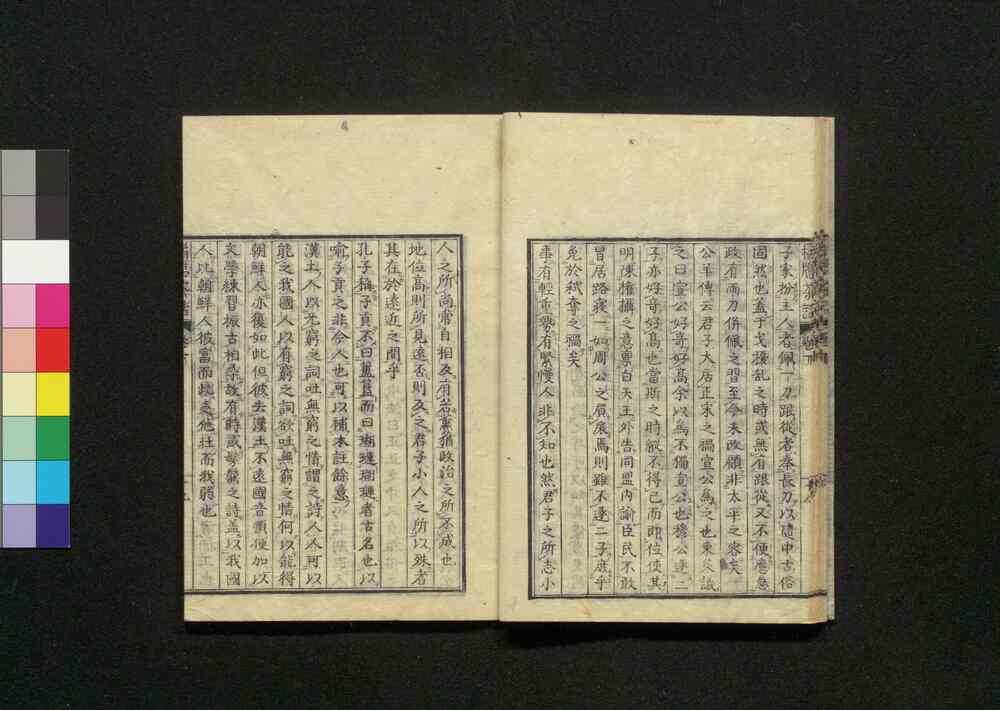 子家扮主人者佩一刀跟從者奉長刀以隨中古俗
固然也蓋干戈擾乱之時或無有跟從又不便應急
政有兩刀併佩之習至今未改顧非太平之容矣
公羊傳云君子大居正宋之禍宣公為之也東炎議
之曰宣公好奇好高余以為不獨宣公也穆公逹二
子亦好奇好高也當斯之時縱不得已而即位使其
明陳檐攝之意禀白天王外告同盟內諭臣民不敢
冒居路寢一如周公之負扆焉則雖不逹二子庶乎
免於弒奪之禍矣
事有輕重勢有緊慢人非不知也然君子之所志小
人之所尚常自相反有若薰蕕政治之所不成也
地位高則所見遠否則反之君子小人之所以殊者
其在於遠近之間乎
孔子稱子貢不曰簠簋而曰瑚璉瑚璉者古名也以
喻子貢之非今人也可以補本註餘意
漢土人以无窮之詞吐無窮之情謂之詩人人可以
能之我國人以有窮之詞欲吐無窮之情何以能得
朝鮮人亦復如此但彼去漢土不遠國音頗便加以
文學練習振古相承故有時或髣髴之詩盖以我國
人比朝鮮人彼富而我乏他壮而我弱也